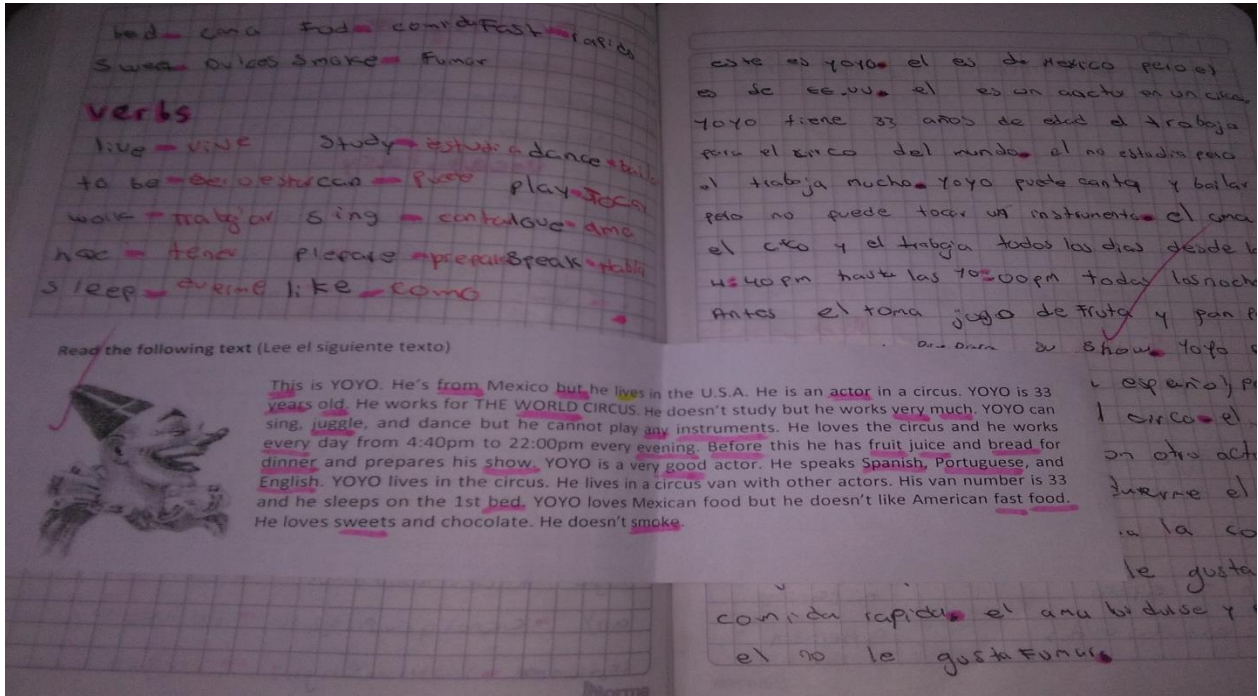 bed - cama food - comida Fast - rapido
Sweet Dulces Smoke - Fumar
verbs
live - vive Study - estudia dance - baila
to be - ser o estar can - puede play - Tocar
work - trabajar sing - canta love - ama
have - tener prepare - prepara speak - habla
sleep - duerme like - como
Read the following text (Lee el siguiente texto)
This is YOYO. He's from Mexico but he lives in the U.S.A. He is an actor in a circus. YOYO is 33
years old. He works for THE WORLD CIRCUS. He doesn't study but he works very much. YOYO can
sing, juggle, and dance but he cannot play any instruments. He loves the circus and he works
every day from 4:40pm to 22:00pm every evening. Before this he has fruit juice and bread for
dinner and prepares his show. YOYO is a very good actor. He speaks Spanish, Portuguese, and
English. YOYO lives in the circus. He lives in a circus van with other actors. His van number is 33
and he sleeps on the 1st bed. YOYO loves Mexican food but he doesn't like American fast food.
He loves sweets and chocolate. He doesn't smoke.
este es yoyo. el es de Mexico pero el
es de EE.UU. el es un en un
YOYO tiene 33 años de edad el trabaja
para el circo del mundo. el no estudia pero
el trabaja mucho. Yoyo puede canta y bailar
pero no puede tocar un instrumento. el ama
el y el trabaja todos los dias desde
4:40 pm hasta las 10:00pm todas las noch
Antes el toma jugo de fruta y pan
su show. Yoyo
español, p
circo. el
on otro act
duerme el
a la co
le gusta
comida rapida. el ama dulse y
el no le gusta Fumar.
Norma